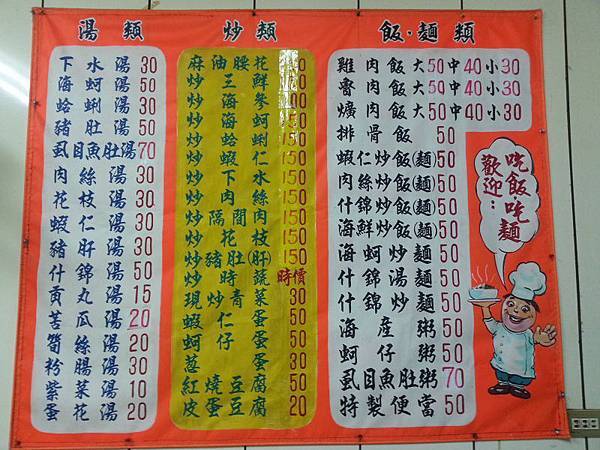 湯類
下水湯30
海蚵湯50
蛤蜊湯50
豬肚湯50
虱目魚肚湯70
肉絲湯30
花枝湯30
蝦仁湯30
豬肝湯30
什錦湯50
貢丸湯15
苦瓜湯20
筍絲湯20
衿腸湯30
紫菜湯10
蛋花湯20
炒類
麻油腰花
炒三鮮
炒海參
炒海蚵
炒蛤蜊150
炒蝦仁150
炒下水150
炒肉絲150
炒隔間肉150
炒花枝150
炒豬肚(肝)150
炒時蔬時價
現炒青菜30
蝦仁蛋50
蚵仔蛋50
蔥蛋30
紅燒豆腐50
皮蛋豆腐20
飯·麵類
雞肉飯大50中40小30
魯肉飯大50中40小30
爌肉飯大50中40小30
排骨飯50
蝦仁炒飯(麵)50
肉絲炒飯(麵)50
什錦炒飯(麵)50
海鮮炒飯(麵)50
海蚵炒麵50
什錦湯麵50
什錦炒麵50
海產粥50
蚵仔粥50
虱目魚肚粥70
特製便當50
歡迎：
吃飯吃麵